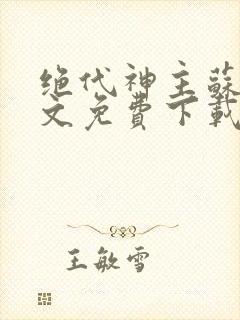 绝代神主蘇
文免費下載
王敏雪